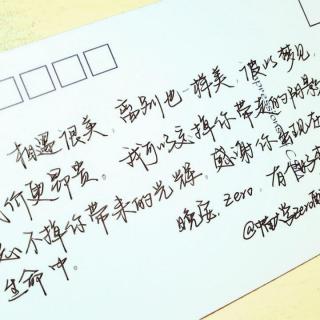 相遇很美,离别也一样美,彼此梦见,
我们更昂贵。我可以忘掉你带来的阴影
忘不掉你带来的光辉。感谢你出现在
生命中。
晚安,zero,有
@zero